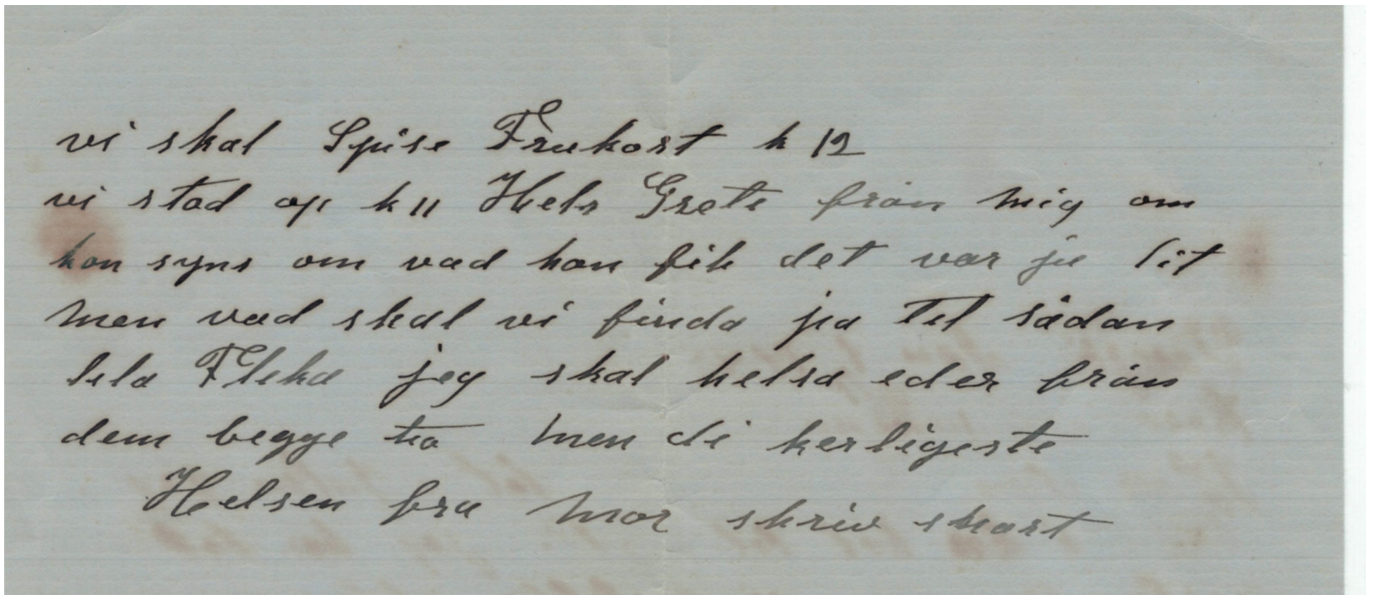 vi skal Spise Frukost k 12
vi stod op k 11 Hels Grete från mig om
hon syns om vad hon fik det var ju lit
men vad skal vi finda pa Til sådan
lila Flika jeg skal helsa eder från
dem begge to men di kerligeste
Helsen fra Mor skriv snart